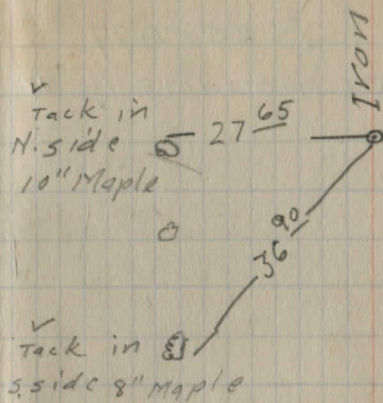 Iron
Tack in
N. side
10" Maple
27 65
36 90
Tack in
S. side 8" Maple